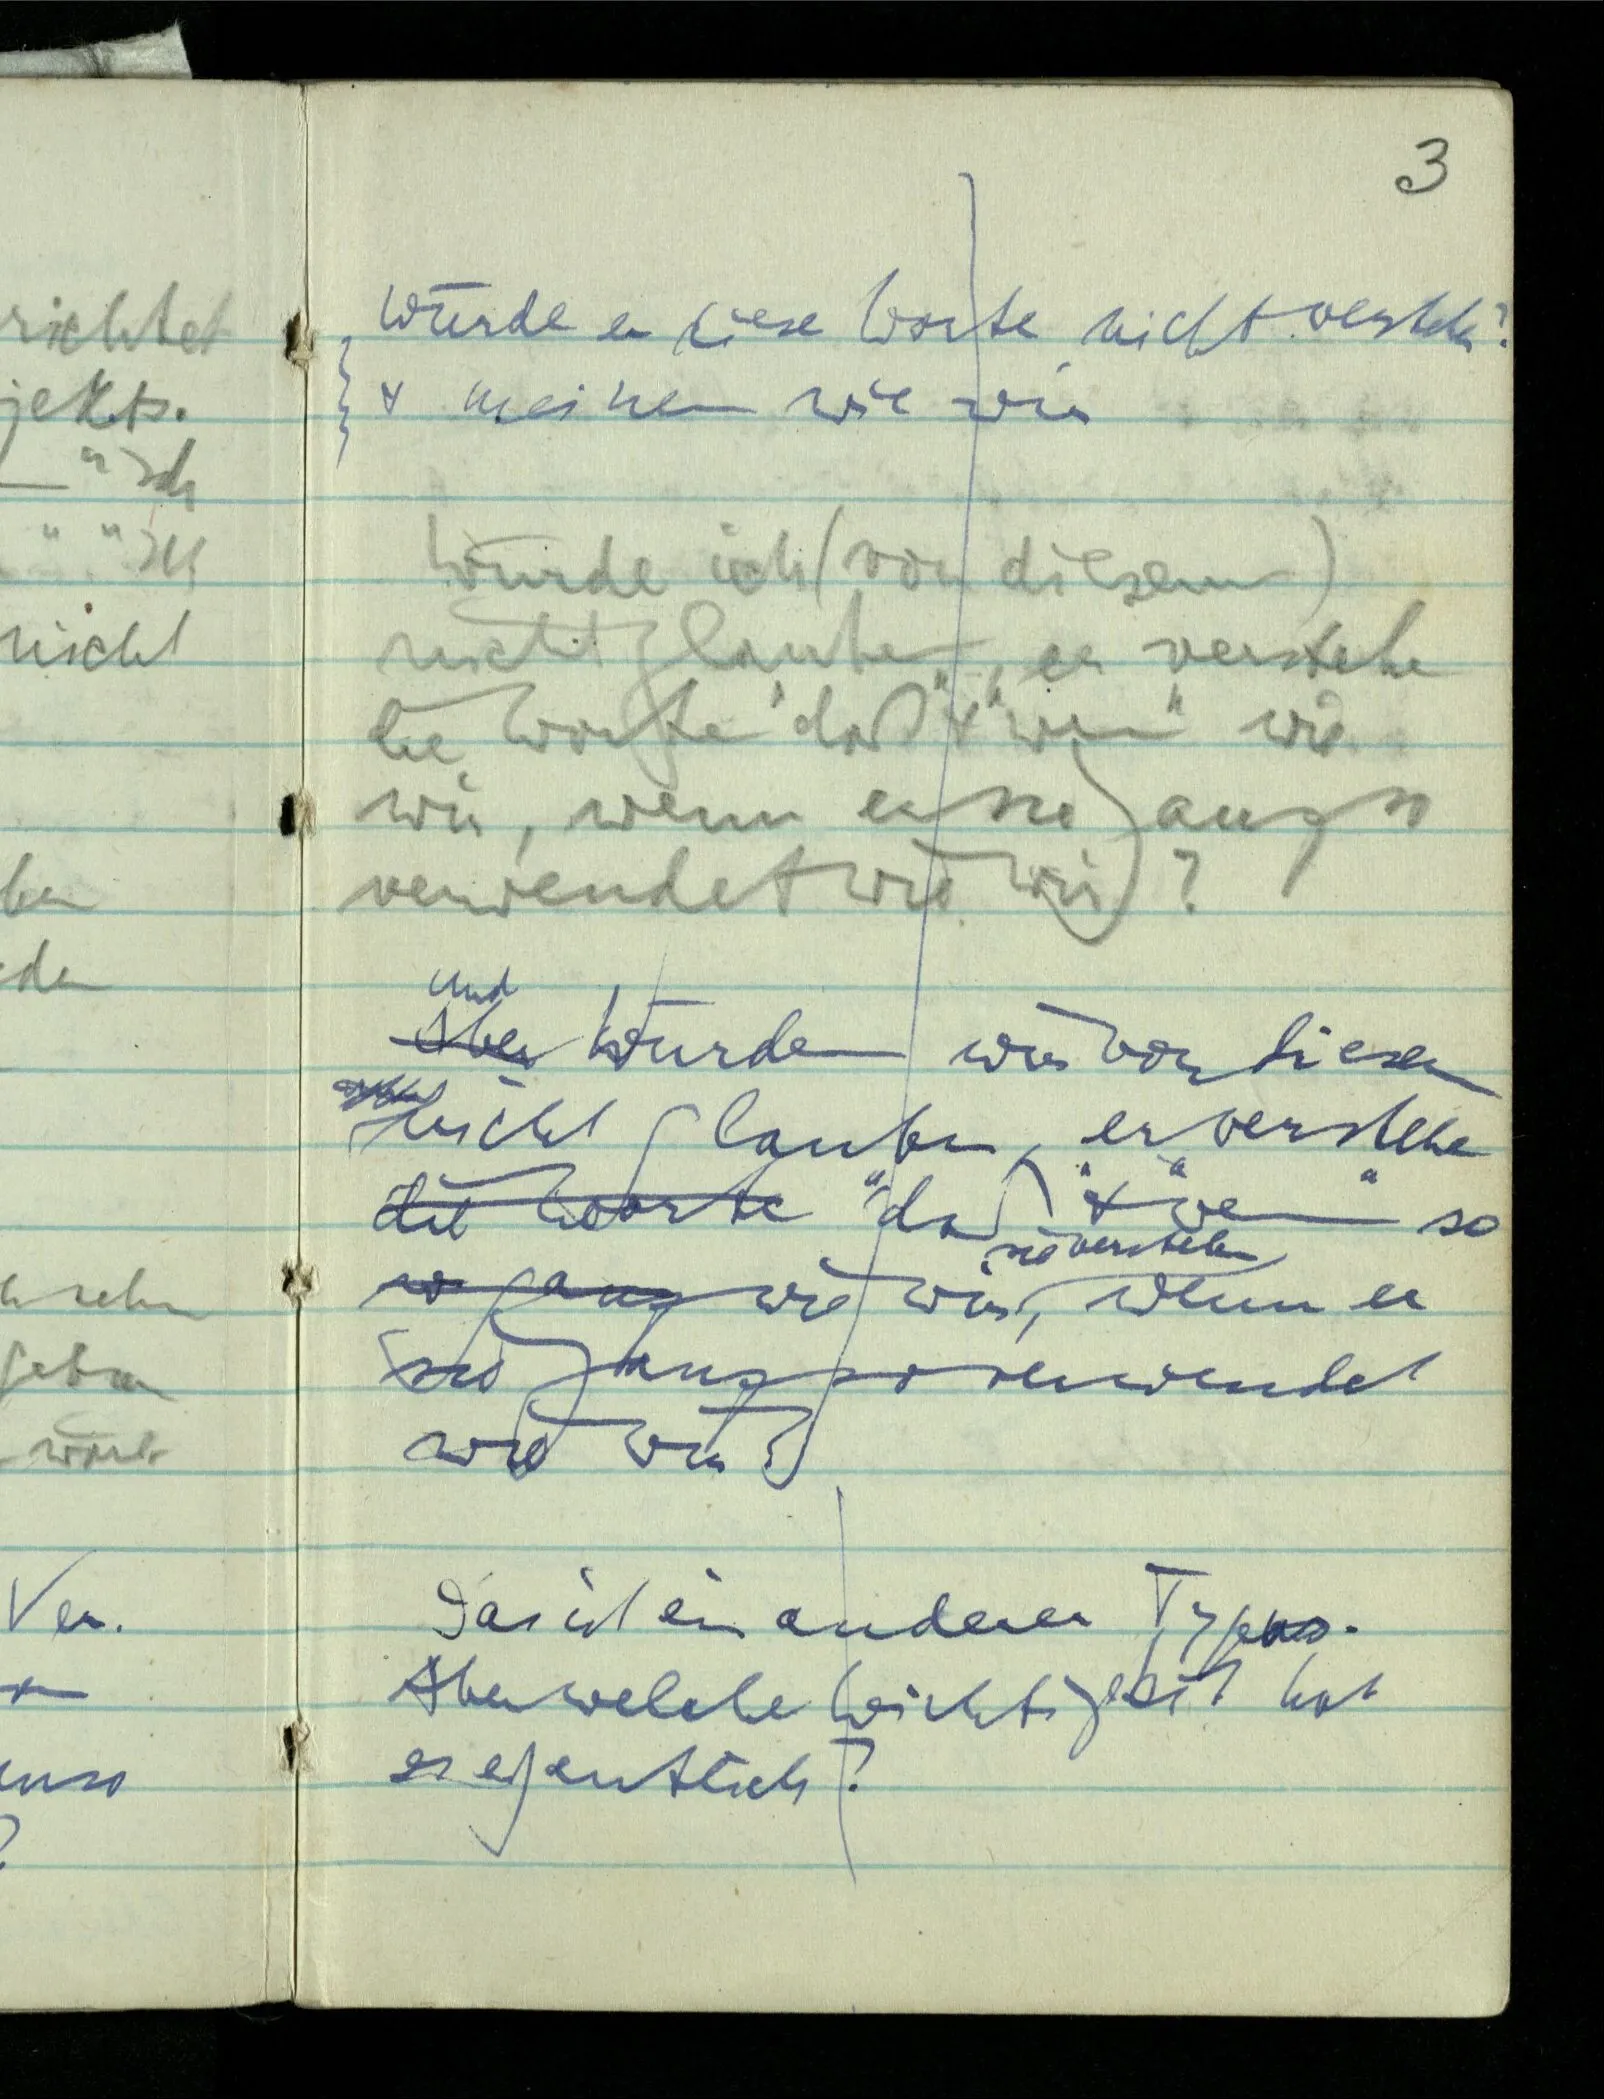 richtet
jekts.
nicht
ben
den
geben
Ver.
3
Würde er diese Worte nicht verstehn?
& meinen wie wir
Würde ich (von diesem)
nicht glauben, er verstehe
die Worte "daß" & "wenn" wie
wir, wenn er sie ganz so
verwendet wie wir?
und
Aber Würden wir von diesem
nicht glauben, er verstehe
die Worte "daß" & "wenn" so
sie verstehen
so ganz wie wir, wenn er
sie ganz so verwendet
wie wir?
Das ist ein anderer Typus.
Aber welche Wichtigkeit hat
er eigentlich?